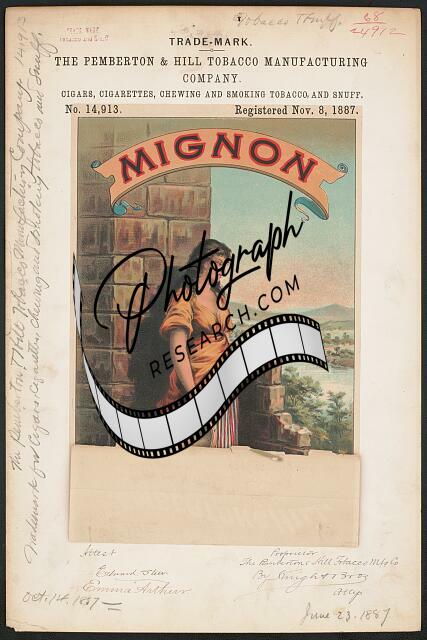 Tobacco
68
24912
TRADE-MARK.
THE PEMBERTON & HILL TOBACCO MANUFACTURING
COMPANY.
CIGARS, CIGARETTES, CHEWING AND SMOKING TOBACCO, AND SNUFF.
No. 14,913.
Registered Nov. 8, 1887.
MIGNON
Photograph
RESEARCH.COM
The Pemberton & Hill Tobacco Manufacturing Company 14913
Trademark for Cigars, Cigarettes, Chewing and Smoking Tobacco and Snuff.
Attest
Edward
Emma Arthur
Oct. 14. 1887
Proprietor
The Pemberton & Hill Tobacco Mfg Co
By Knight Bros
Attys
June 23. 1887